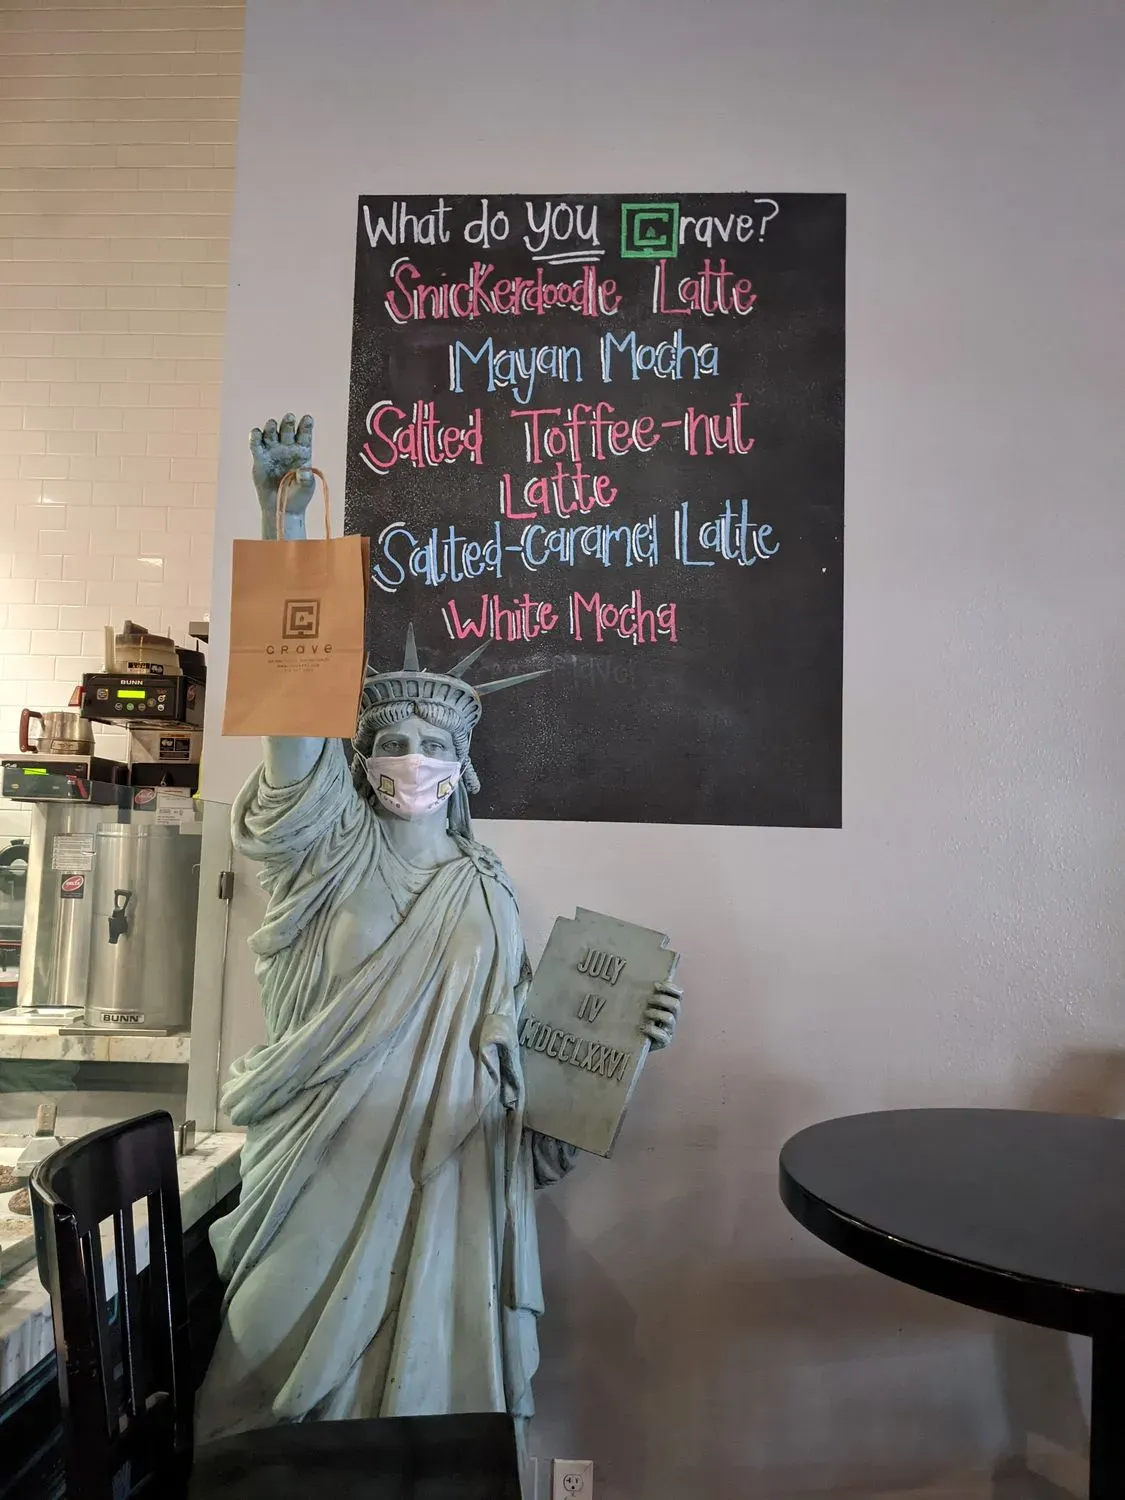 What do you Crave?
Snickerdoodle Latte
Mayan Mocha
Salted Toffee-nut
Latte
Salted-Caramel Latte
White Mocha
CRAVE
BUNN
BUNN
JULY
IV
MDCCLXXVI